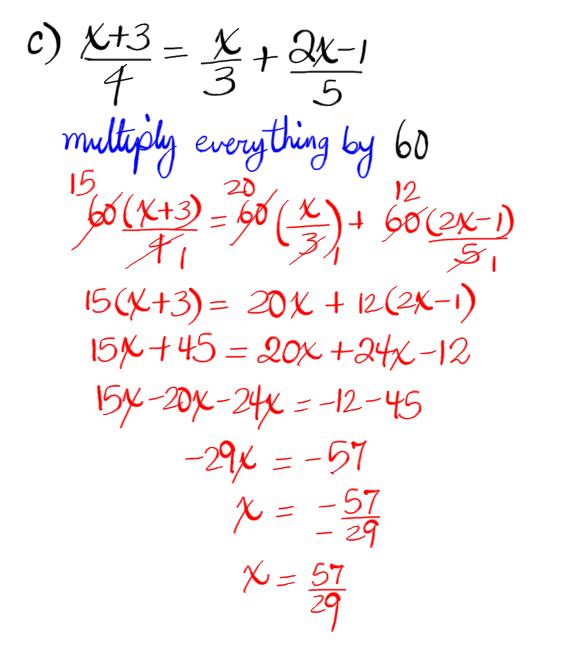 c) (x+3)/4 = x/3 + (2x-1)/5
multiply everything by 60
15 20 12
60(x+3)/4 1 = 60(x/3 1) + 60(2x-1)/5 1
15(x+3) = 20x + 12(2x-1)
15x + 45 = 20x + 24x - 12
15x - 20x - 24x = -12 - 45
-29x = -57
x = -57/-29
x = 57/29